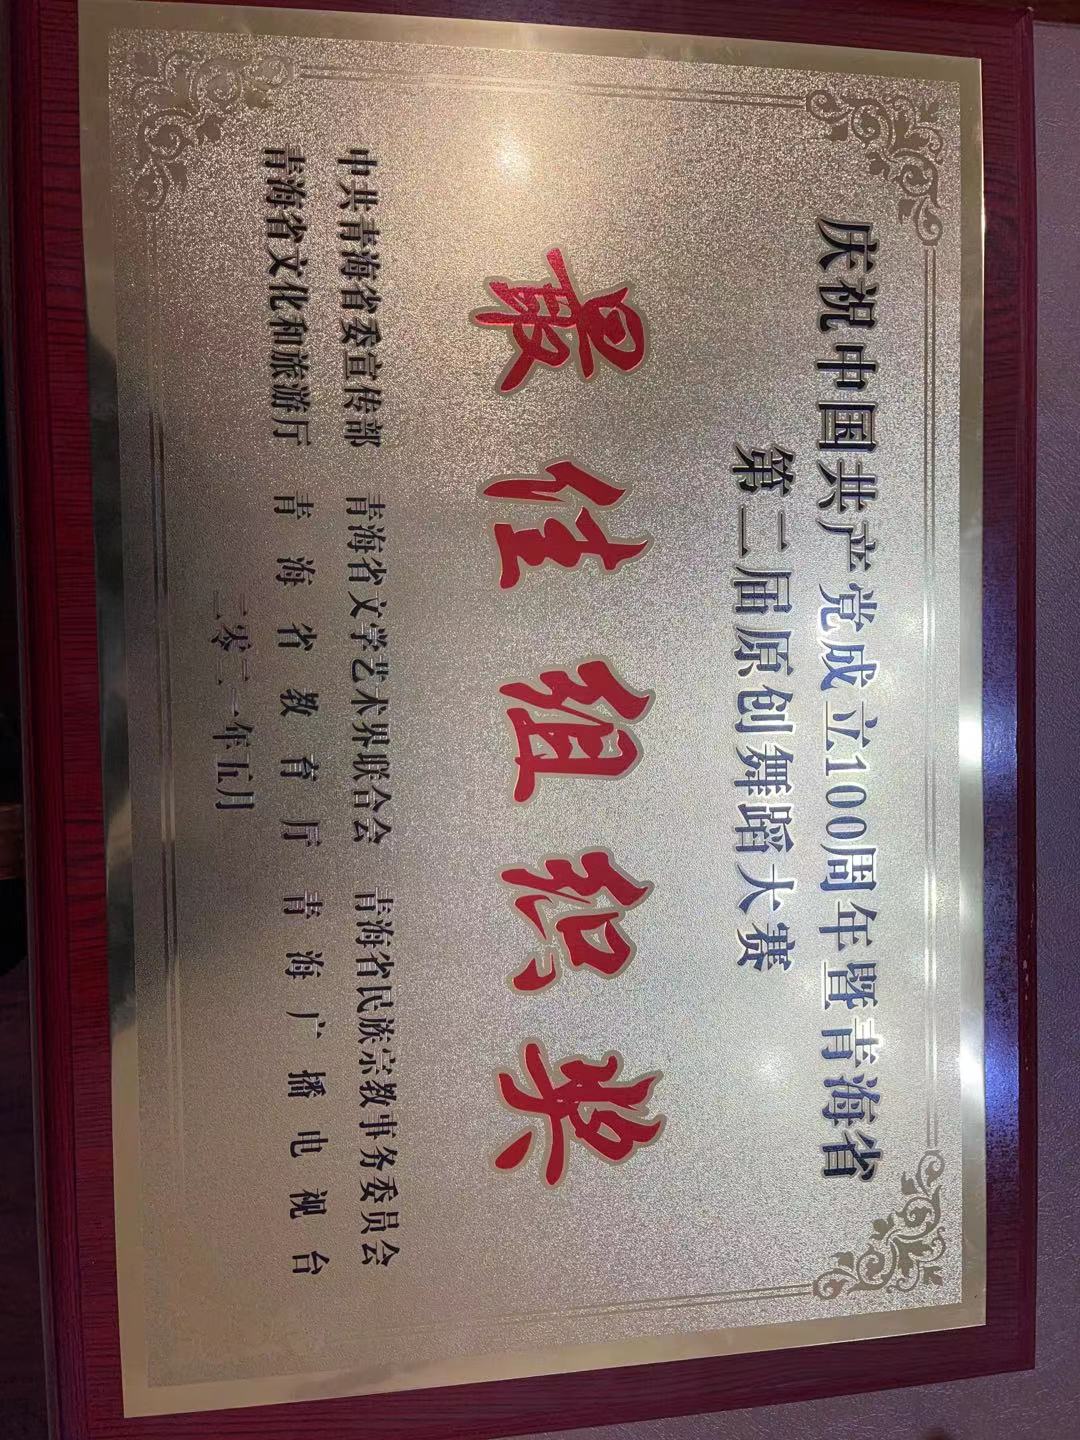 庆祝中国共产党成立100周年暨青海省
第二届原创舞蹈大赛
最佳组织奖
中共青海省委宣传部 青海省文学艺术界联合会 青海省民族宗教事务委员会
青海省文化和旅游厅 青海省教育厅 青海广播电视台
二零二一年五月